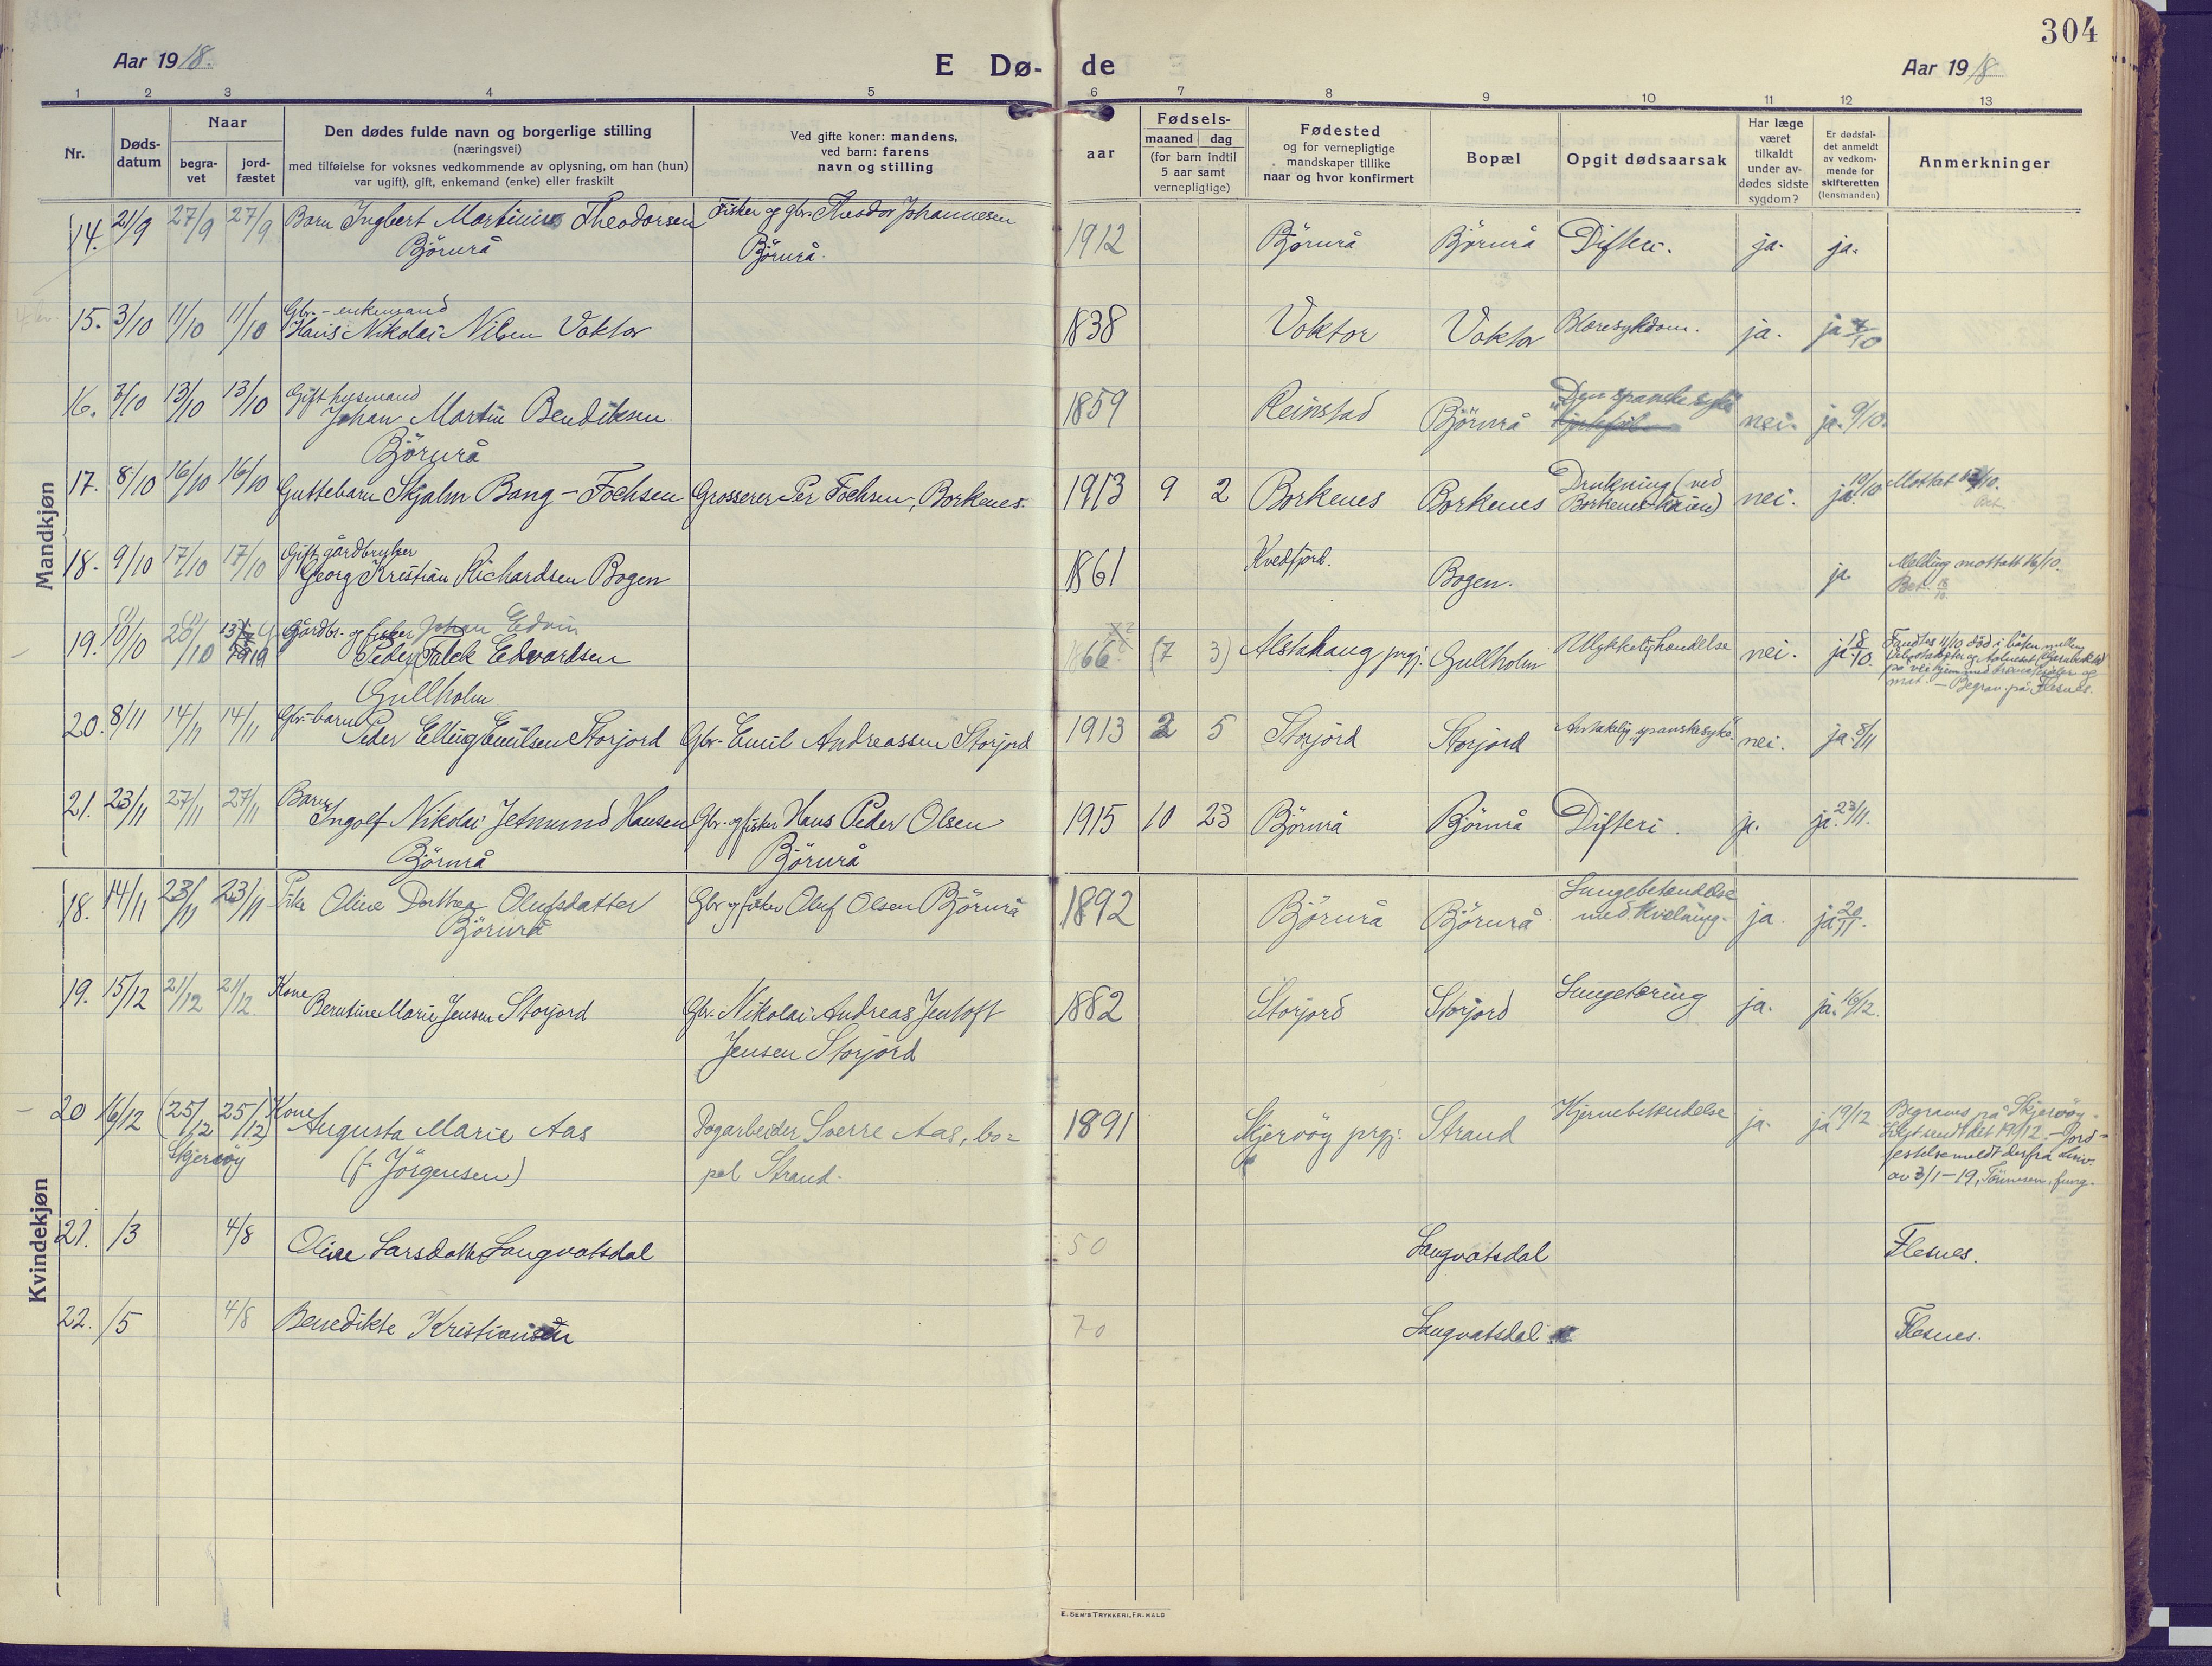 304
Aar 1918.
E Dø-de
Aar 1918
1 2 3 4 5 6 7 8 9 10 11 12 13
Nr.
Døds-
datum
Naar
begra-
vet
jord-
fæstet
Den dødes fulde navn og borgerlige stilling
(næringsvei)
med tilføielse for voksnes vedkommende av oplysning, om han (hun)
var ugift), gift, enkemand (enke) eller fraskilt
Ved gifte koner: mandens,
ved barn: farens
navn og stilling
Fødsels-
aar
maaned dag
(for barn indtil
5 aar samt
vernepligtige)
Fødested
og for vernepligtige
mandskaper tillike
naar og hvor konfirmert
Bopæl
Opgit dødsaarsak
Har læge
været
tilkaldt
under av-
dødes sidste
sygdom?
Er dødsfal-
det anmeldt
av vedkom-
mende for
skifteretten
(lensmanden)
Anmerkninger
Mandkjøn
14. 21/9 27/9 27/9 Barn Ingbert Martinius Theodorsen Fisker og gbr. Theodor Johannesen 1912 Björnrå Björnrå Difteri. ja. ja.
Björnrå Björnrå.
15. 3/10 11/10 11/10 Gbr. - enkemand
Hans Nikolai Nilsen Voktor 1838 Voktor Voktor Blæresykdom. ja. ja 7/10
16. 7/10 13/10 13/10 Gift husmand
Johan Martin Bendiksen 1859 Reinstad Björnrå "Den spanske syke" nei. ja. 9/10.
Björnrå
17. 8/10 16/10 16/10 Guttebarn Skjalm Bang-Fochsen Grosserer Per Fochsen, Borkenes. 1913 9 2 Borkenes Borkenes Drukning (ved
Borkenes-kaien) nei. ja. 10/10 Mottat 10.
18. 9/10 17/10 17/10 Gift gårdbruker
Georg Kristian Richardsen Bogen 1861 Kvedfjord. Bogen. ja. Melding mottatt 16/10.
Bet. 18/10.
19. 10/10 20/10 1919 Gårdbr. og fisker Johan Edvin
Peder Falck Edvardsen 66 (7 3) Alstahaug prgj. Gullholm Ulykkelighændelse nei. ja 18/10. Fandtes 11/10 død i båten mellem
Gullholm
mat. - Begrav. på Flesnes.
20. 8/11 14/11 14/11 Gbr.-barn
Peder Elling Emilsen Storjord Gbr. Emil Andreassen Storjord 1913 2 5 Storjord Storjord Antakelig spanskesyke. nei. ja. 8/11
21. 23/11 27/11 27/11 Barn
Ingolf Nikolai Jetmund Hansen Gbr. og fisker Hans Peder Olsen 1915 10 23 Björnrå Björnrå Difteri. ja. ja. 23/11.
Björnrå Björnrå
Kvindekjøn
18. 14/11 23/11 23/11 Pike Oline Dorthea Olufsdatter Gbr og fisker Oluf Olsen Björnrå 1892 Björnrå Björnrå Lungebetændelse
med kvelning. ja. ja 20/11.
Björnrå
19. 15/12 21/12 21/12. Kone
Berntine Marie Jensen Storjord Gbr. Nikolai Andreas Jentoft 1882 Storjord Storjord Lungetæring ja. ja. 16/12.
Jensen Storjord
20 16/12 (25/12 25/12) Kone
Augusta Marie Aas Dagarbeider Sverre Aas, bo= 1891 Skjervöy prgj. Strand Hjernebetændelse ja. ja 19/12 Begraves på Skjervöy.
Skjervöy (f. Jörgensen) pæl Strand. Liket sendt det 19/12. - Jord-
festelse meldt derfra
av 3/1-19, Tönnesen, fung.
21. /3 4/8 Oline Larsdatter Langvatsdal 50 Langvatsdal Flesnes.
22. /5 4/8 Benedikte Kristiansen 70 Langvatsdal Flesnes.
E. SEM'S TRYKKERI, FR.HALD